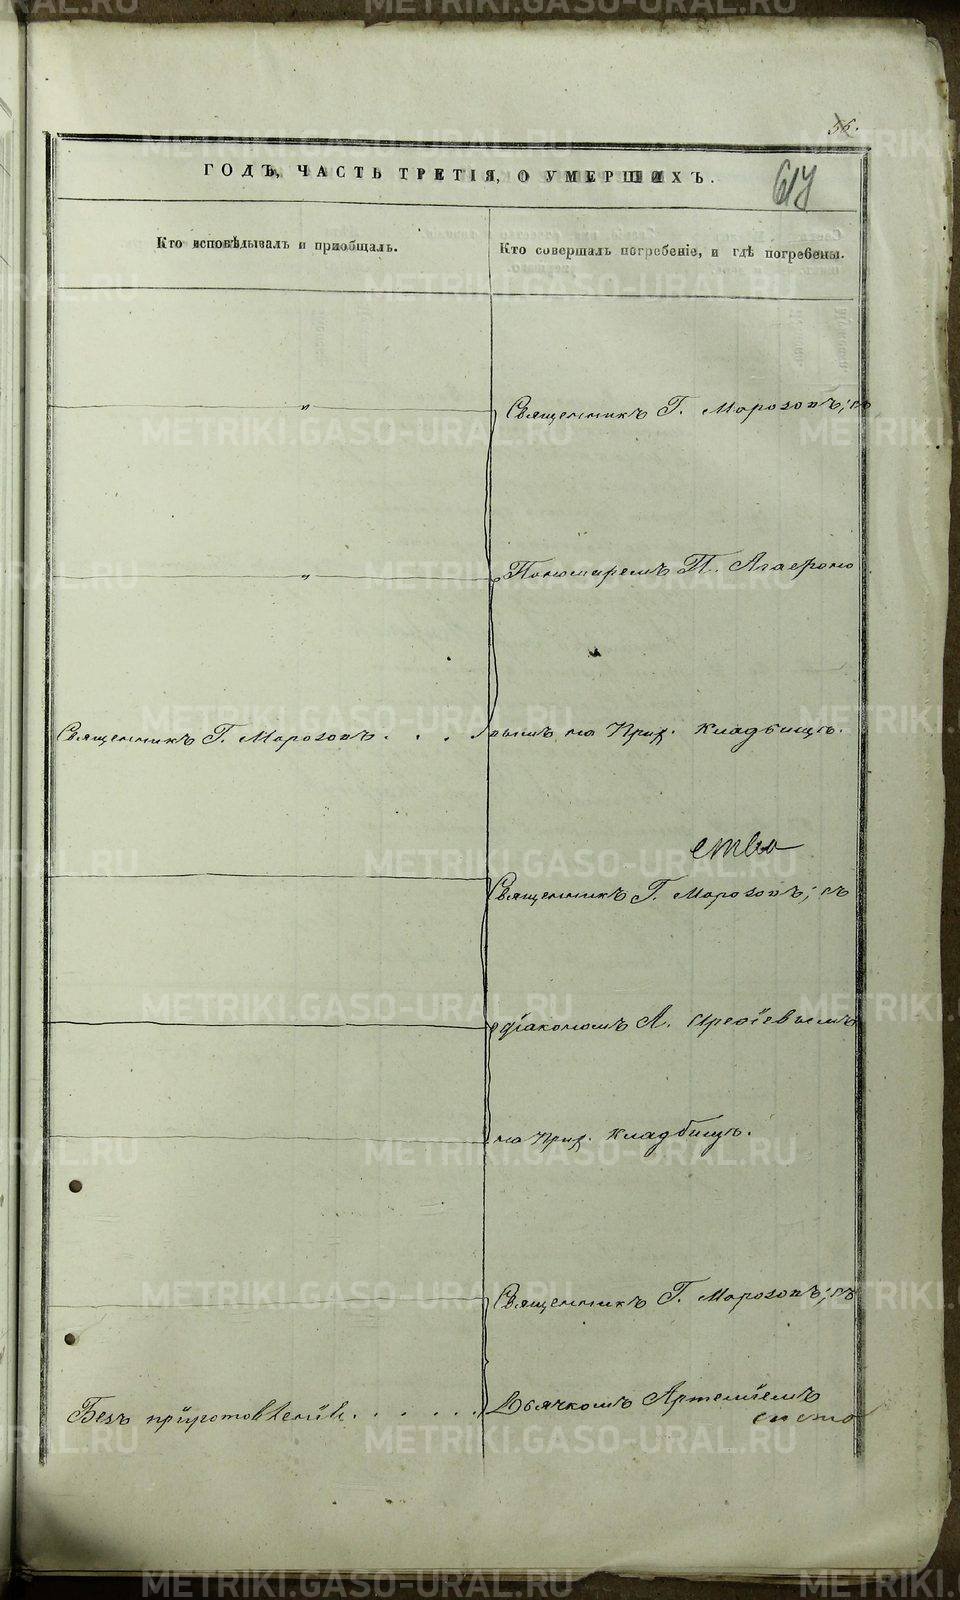 56.
617
ГОДЪ, ЧАСТЬ ТРЕТІЯ, О УМЕРШИХЪ.
Кто исповѣдывалъ и приобщалъ.
Кто совершалъ погребеніе, и гдѣ погребены.
" Священникъ Г. Морозовъ; съ
" Пономаремъ П. Агаѳоно
Священникъ Г. Морозовъ. . . . вымъ на Прих. кладбищѣ.
Священникъ Г. Морозовъ; съ
діакономъ А.
на Прих. кладбищѣ.
Священникъ Г. Морозовъ; съ
Безъ приготовленія. . . . . . Дьячкомъ Артеміемъ
METRIKI.GASO-URAL.RU